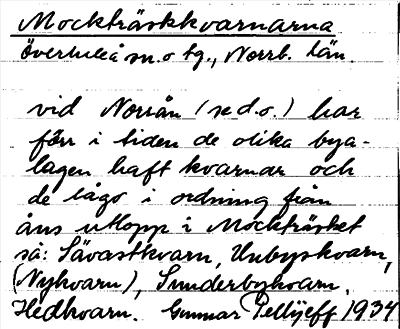 Mockträskkvarnarna
Överluleå sn. o tg., Norrb. län.
vid Norrån (se d.o.) har
förr i tiden de olika bya-
lagen haft kvarnar och
de lågo i ordning från
åns utlopp i Mockträsket
så: Sävastkvarn, Unbyskvarn,
(Nykvarn), Sunderbykvarn,
Hedkvarn. Gunnar Pellijeff 1934